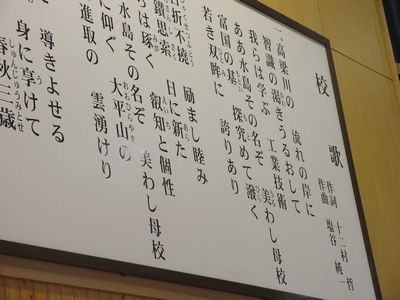 校歌
作詞 十二村 哲
作曲 塩谷 純一
一、高梁川の 流れの岸に
智識の渇き うるおして
我らは学ぶ 工業技術
ああ水島 その名ぞ 美わし母校
富国の基 探究めて溌く
若き双眸に 誇りあり
励まし睦み
百折不撓 日に新た
錯思索 叡知と個性
らは琢く
水島 その名ぞ 美わし母校
に仰ぐ 大平山の
進取の 雲湧けり
導きよせる
身に享けて
春秋三歳